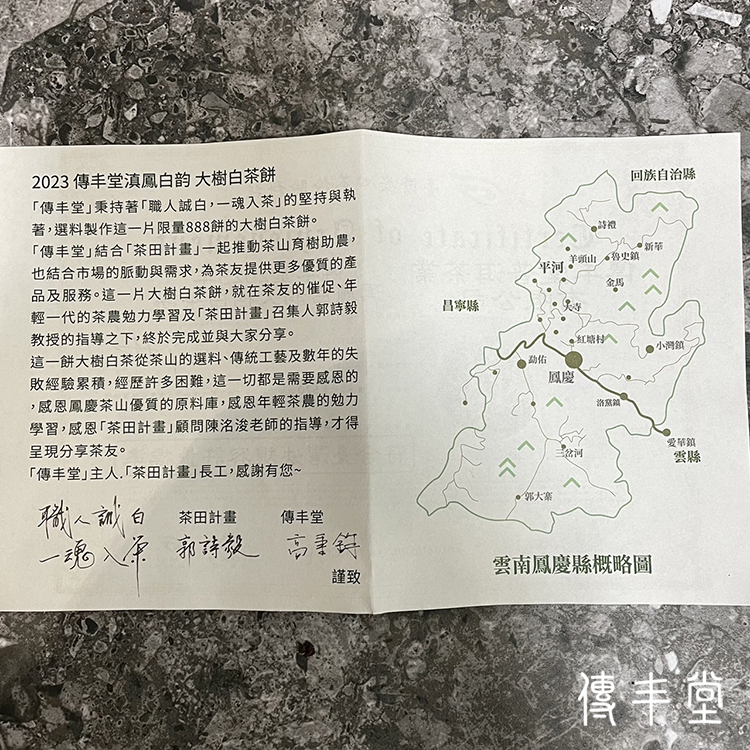 2023 傳丰堂滇鳳白韵 大樹白茶餅
「傳丰堂」秉持著「職人誠白,一魂入茶」的堅持與執
著,選料製作這一片限量888餅的大樹白茶餅。
「傳丰堂」結合「茶田計畫」一起推動茶山育樹助農,
也結合市場的脈動與需求,為茶友提供更多優質的產
品及服務。這一片大樹白茶餅,就在茶友的催促、年
輕一代的茶農勉力學習及「茶田計畫」召集人郭詩毅
教授的指導之下,終於完成並與大家分享。
這一餅大樹白茶從茶山的選料、傳統工藝及數年的失
敗經驗累積,經歷許多困難,這一切都是需要感恩的
,感恩鳳慶茶山優質的原料庫,感恩年輕茶農的勉力
學習,感恩「茶田計畫」顧問陳洺浚老師的指導,才得
呈現分享茶友。
「傳丰堂」主人.「茶田計畫」長工,感謝有您~
職人誠白
一魂入茶
茶田計畫
郭詩毅
傳丰堂
謹致
回族自治縣
詩禮
新華
魯史鎮
羊頭山
平河
金馬
昌寧縣
大寺
紅塘村
小灣鎮
勐佑
鳳慶
洛黨鎮
愛華鎮
雲縣
三岔河
郭大寨
雲南鳳慶縣概略圖
傳丰堂